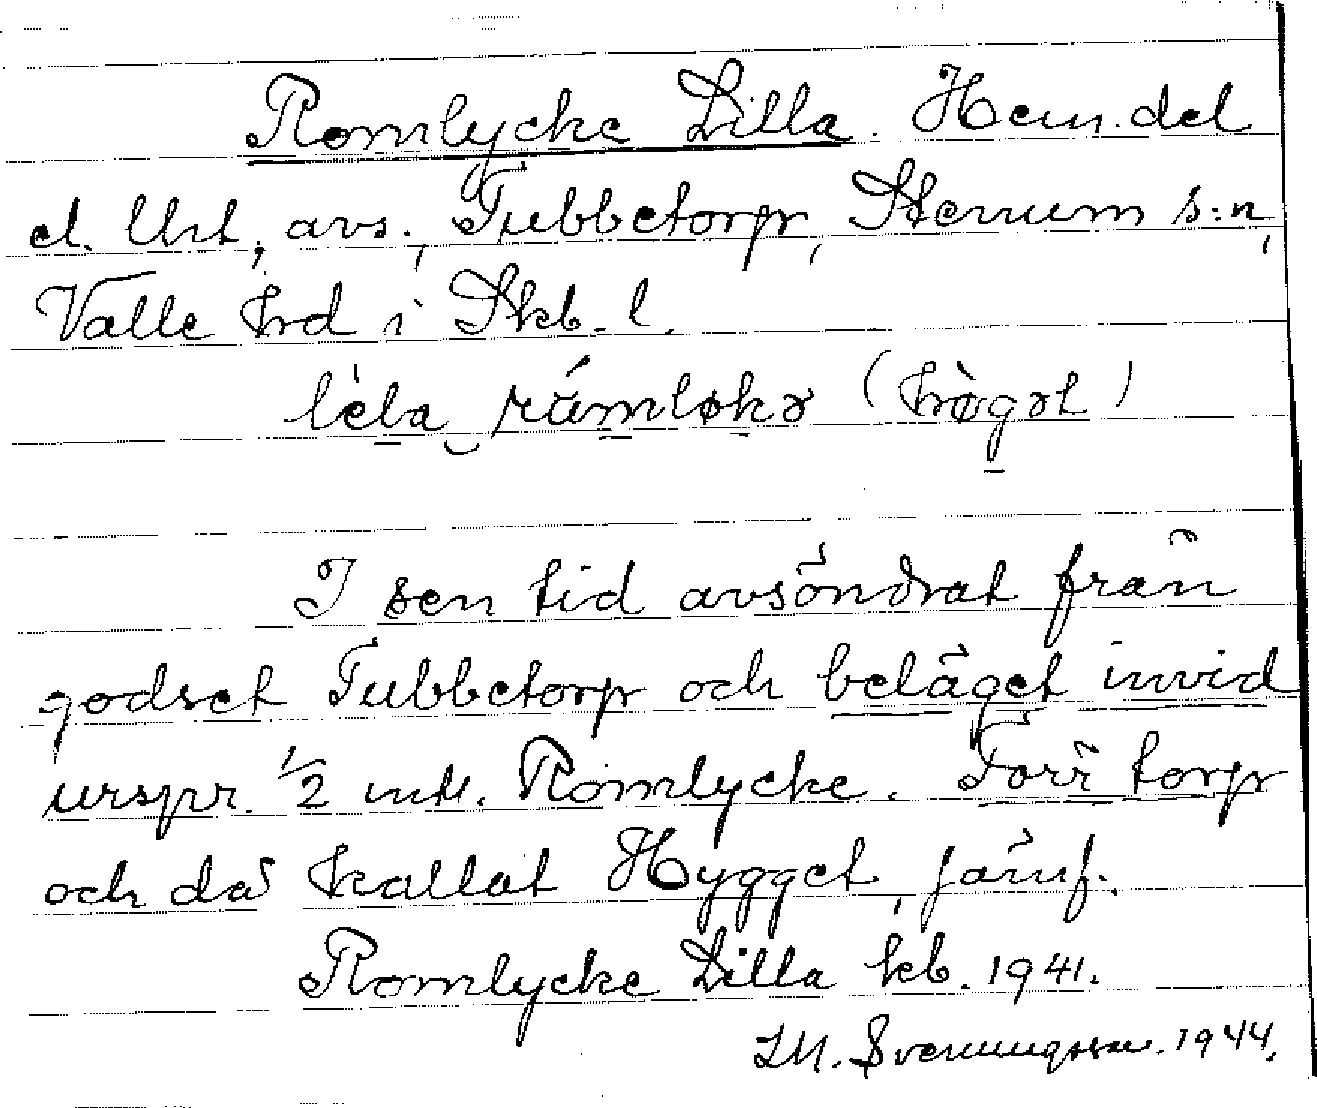 Romlycke Lilla. Hem.del
el. Uht, avs., Tubbetorp, Stenum s:n,
Valle hrd i Skb. l.
lèla rámløkə (hògət)
I sen tid avsöndrat från
godset Tubbetorp och beläget invid
urspr. 1/2 mtl. Romlycke. Förr torp
och då kallat Hygget, jämf.
Romlycke Lilla kb. 1941.
Svenungsson. 1944.